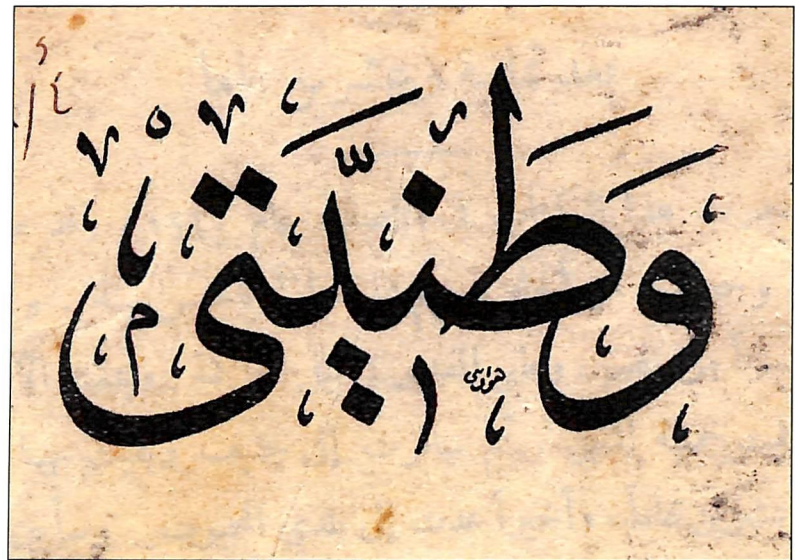 وَطَنِيَّتى